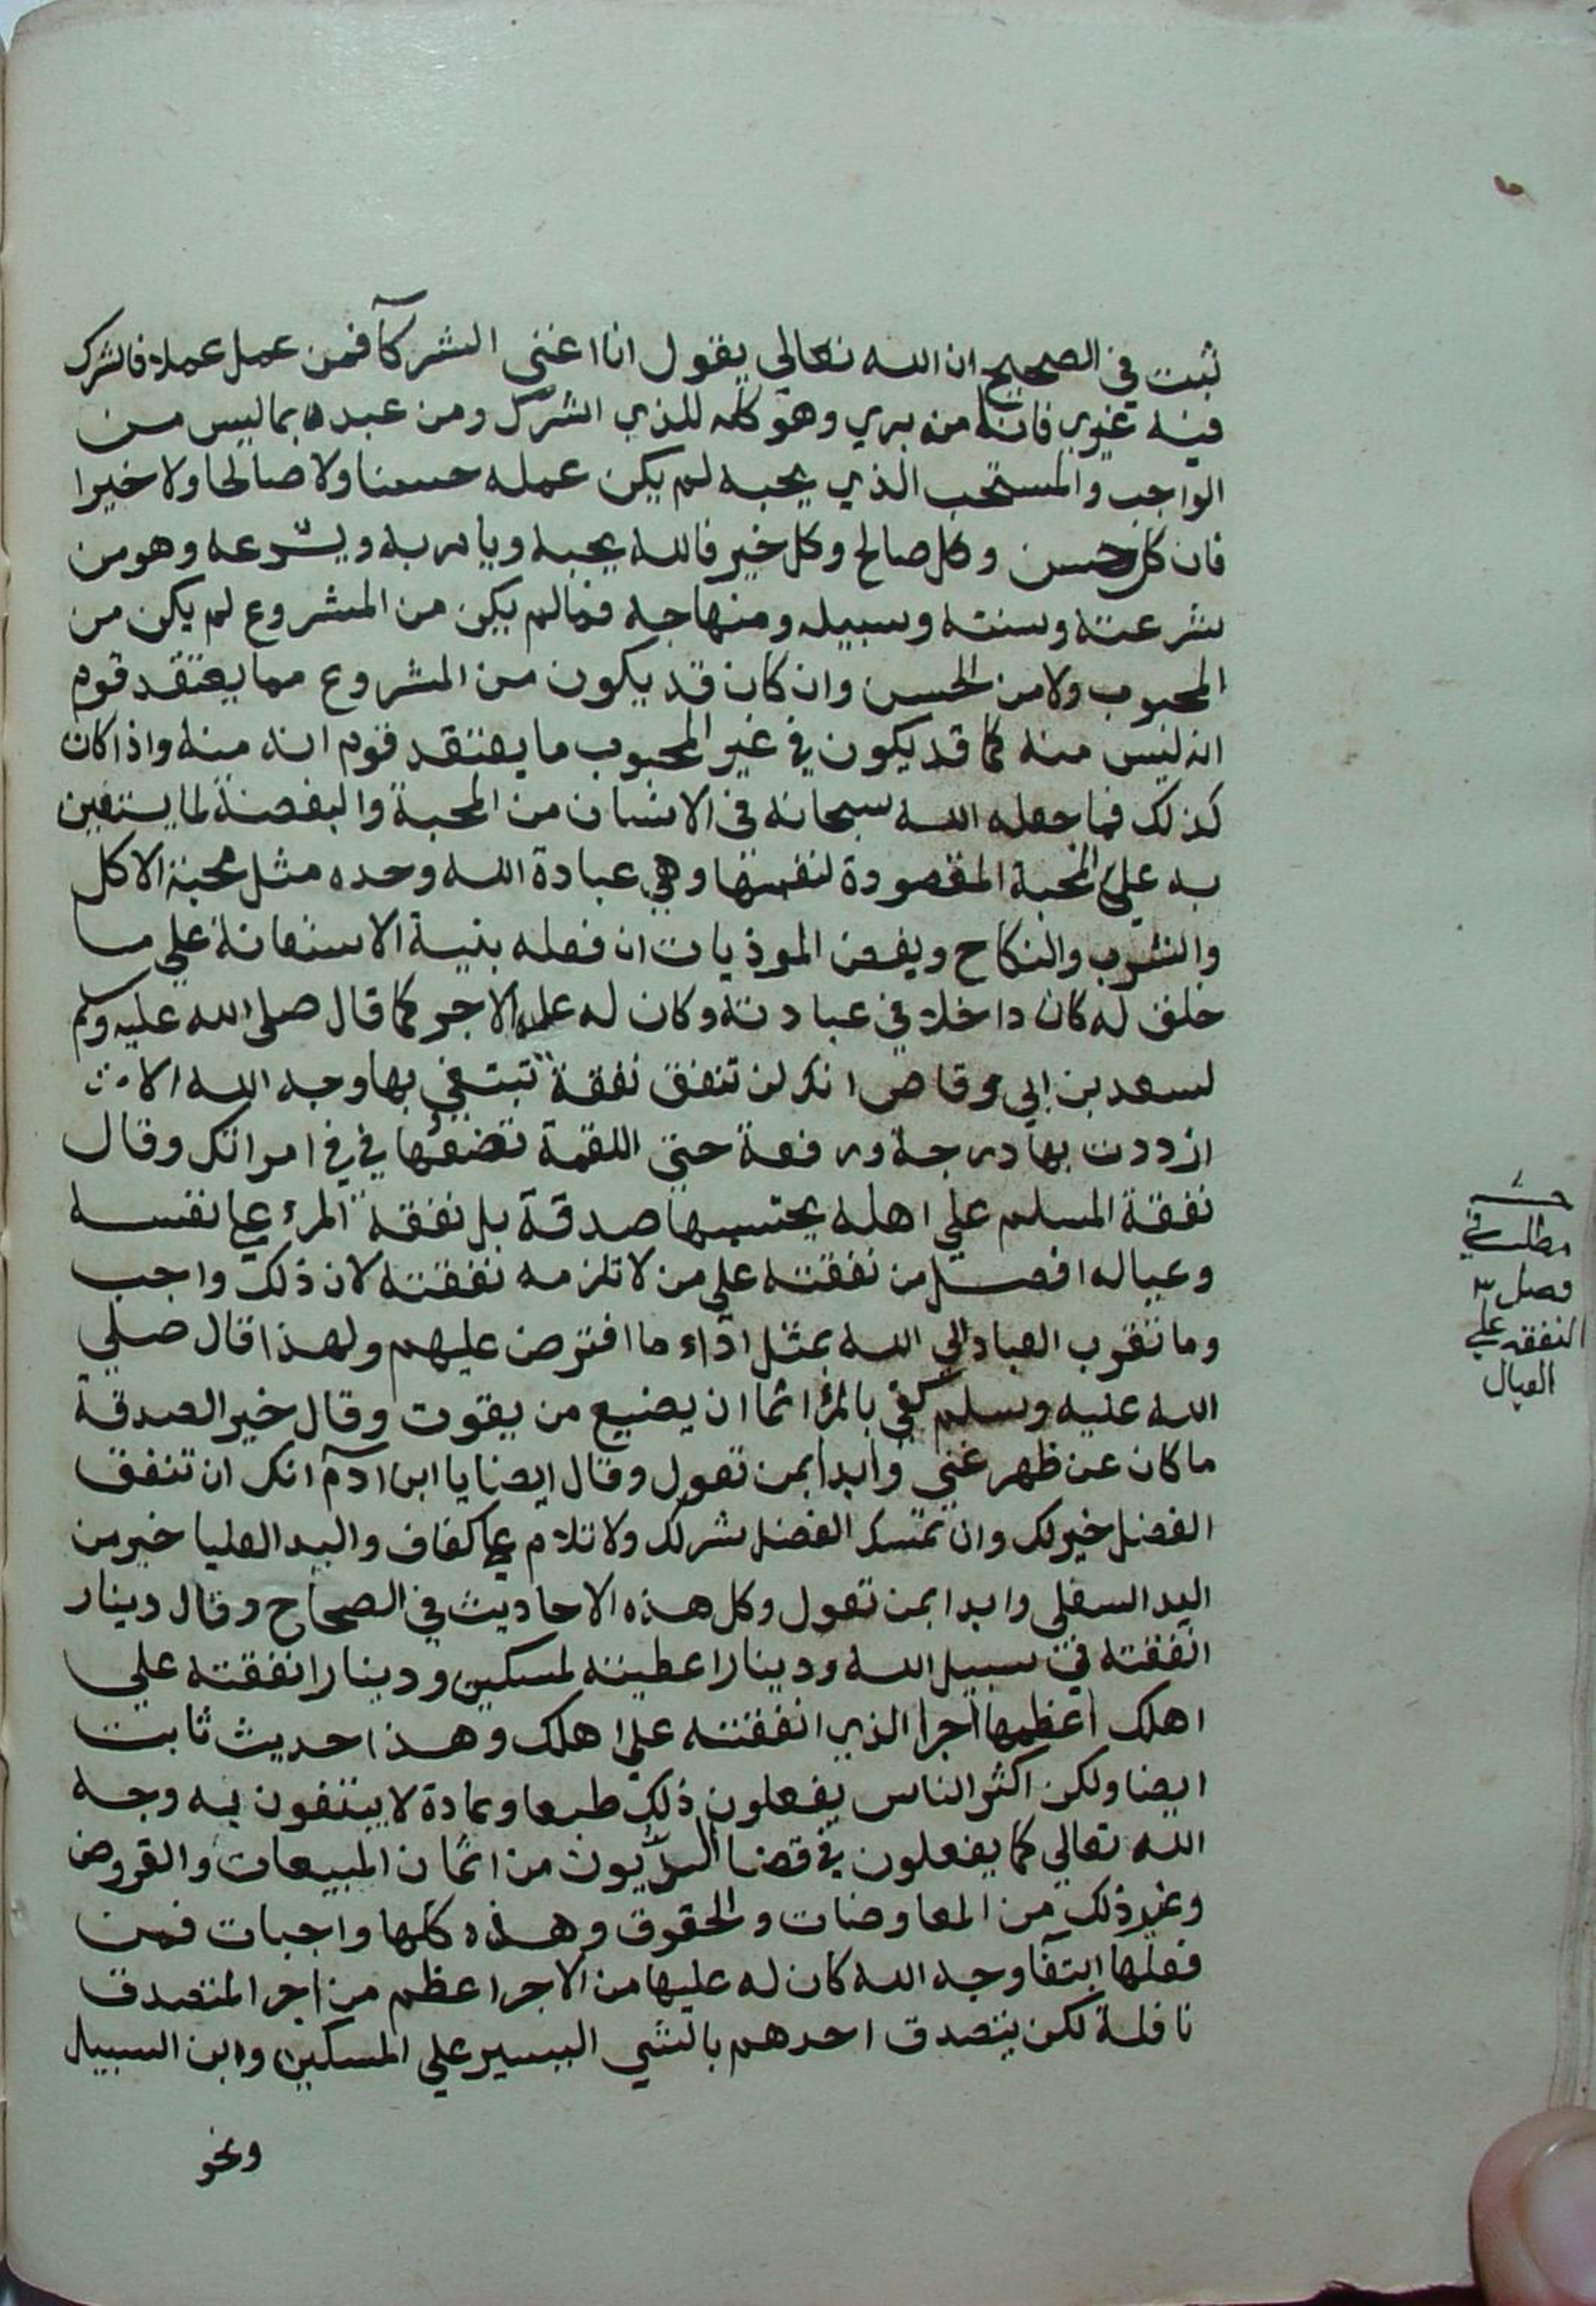 ثبت في الصحيح ان الله تعالي يقول انا اغني الشركآ فمن عمل عملا فاشرك
فيه غيري فانا منه بري وهو كله للذي اشرك ومن عبده بما ليس من
الواجب والمستحب الذي يحبه لم يكن عمله حسنا ولا صالحا ولا خيرا
فان كل حسن وكل صالح وكل خير فالله يحبه ويامر به ويشرعه وهو من
شرعته وسنته وسبيله ومنهاجه فما لم يكن من المشروع لم يكن من
المحبوب ولا من الحسن وان كان قد يكون من المشروع مما يعتقد قوم
انه ليس منه كما قد يكون في غير المحبوب ما يعتقد قوم انه منه واذا كان
كذلك فما جعله الله سبحانه في الانسان من المحبة والبغضة لما يستعين
به علي المحبة المقصودة لنفسها وهي عبادة الله وحده مثل محبة الاكل
والشرب والنكاح وبغض الموذيات ان فعله بنية الاستعانة علي ما
خلق له كان داخلا في عبادته وكان له عليه الاجر كما قال صلى الله عليه وسلم
لسعد بن ابي وقاص انك لن تنفق نفقة تبتغي بها وجه الله الا
ازددت بها درجة ورفعة حتى اللقمة تضعها في في امراتك وقال
نفقة المسلم علي اهله يحتسبها صدقة بل نفقة المرء على نفسه
وعياله افضل من نفقته علي من لا تلزمه نفقته لان ذلك واجب
وما تقرب العباد الي الله بمثل اداء ما افترض عليهم ولهذا قال صلي
الله عليه وسلم كفي بالمرء اثما ان يضيع من يقوت وقال خير الصدقة
ما كان عن ظهر غني وابدا بمن تعول وقال ايضا يا ابن آدم انك ان تنفق
الفضل خير لك وان تمسك الفضل شر لك ولا تلام على كفاف واليد العليا خير من
اليد السفلي وابدا بمن تعول وكل هذه الاحاديث في الصحاح وقال دينار
انفقته في سبيل الله ودينار اعطيته لمسكين ودينار انفقته علي
اهلك اعظمها اجرا الذي انفقته علي اهلك وهذا حديث ثابت
ايضا ولكن اكثر الناس يفعلون ذلك طبعا وعادة لا يبتغون به وجه
الله تعالي كما يفعلون في قضا الديون من اثمان المبيعات والقروض
وغير ذلك من المعاوضات والحقوق وهذه كلها واجبات فمن
فعلها ابتغآ وجه الله كان له عليها من الاجر اعظم من اجر المتصدق
نافلة لكن يتصدق احدهم بالشي اليسير علي المسكين وابن السبيل
ونحو
مطلب في
فضل
النفقه علي
العيال